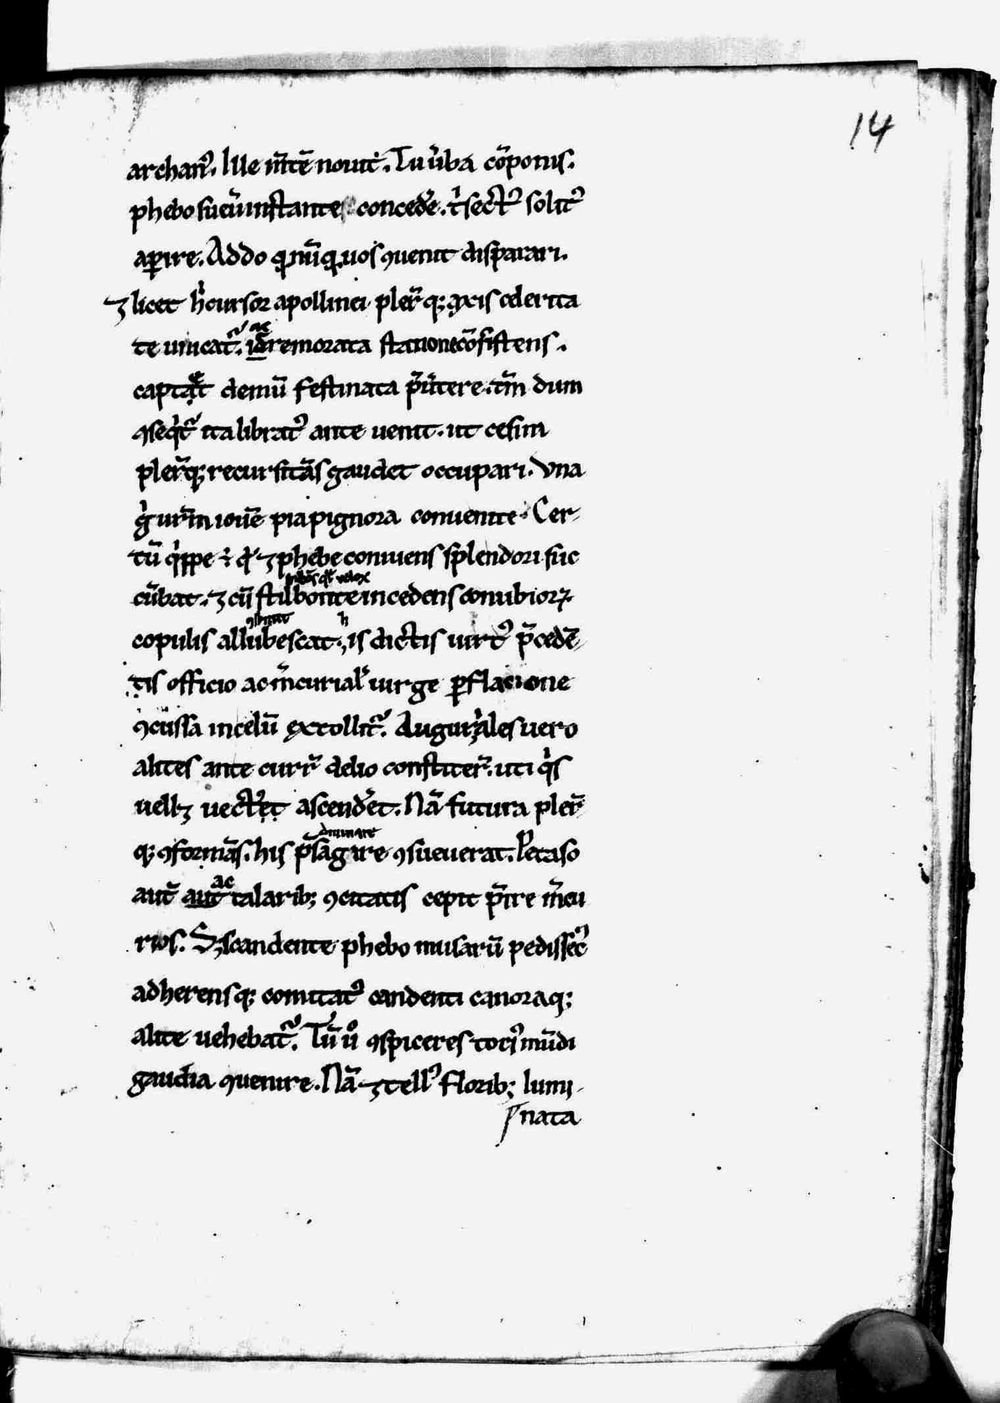 14
archanꝰ. Ille m̄tē nouit. Tu ūba cōponis.
phebo sucūm instante concedē. t̄sectꝰ solitꝰ
aꝑire. Addo ꝙ nūq̄ uos ꝯuenit disparari.
⁊ licet h̄ cursor apollinei pler̄q; axis celerita
te uincat᷑. ac id̄ remorata stationecōsistens.
captat demū festinata p̄ūtere. tm̄ dum
ꝯseqͥt᷑ ita libratꝰ ante uenit. ut cesim
pler̄q; recursitās gaudet occupari. Vna
gͥ ur̄m iouē pia pignora conuenite. Cer-
tū qͥppe ÷ qͩ ⁊ phebe conniuens splendori suc
cūbat. ⁊ cū stilbonte incedens conubioꝝ
copulis allubescat. h is dictis uirtꝰ p̄cedē-
tis officio ac m̄curial̓ uirge ꝑflacione
ꝯcussa in celū extollit᷑. Augurales uero
alites ante curr̄ delio constiter̄. uti qͥs
uell⁊ uectꝰ et ascendēt. Nā futura pler̄
q; ꝯformās. his p̄sagire ꝯsueuerat. Petaso
aut̄ aut̄ ac talarib; ꝯcitatis cepit p̄ire m̄cu
riꝰ. S⁊ scandente phebo musarū pedisseqꝰ
adherensq; comitatꝰ candenti canoraq;
alite uehebat᷑. Tū uͦ ꝯspiceres tociꝰ mūdi
gaudia ꝯuenire. Nā ⁊ tellꝰ florib; lumi-
nata